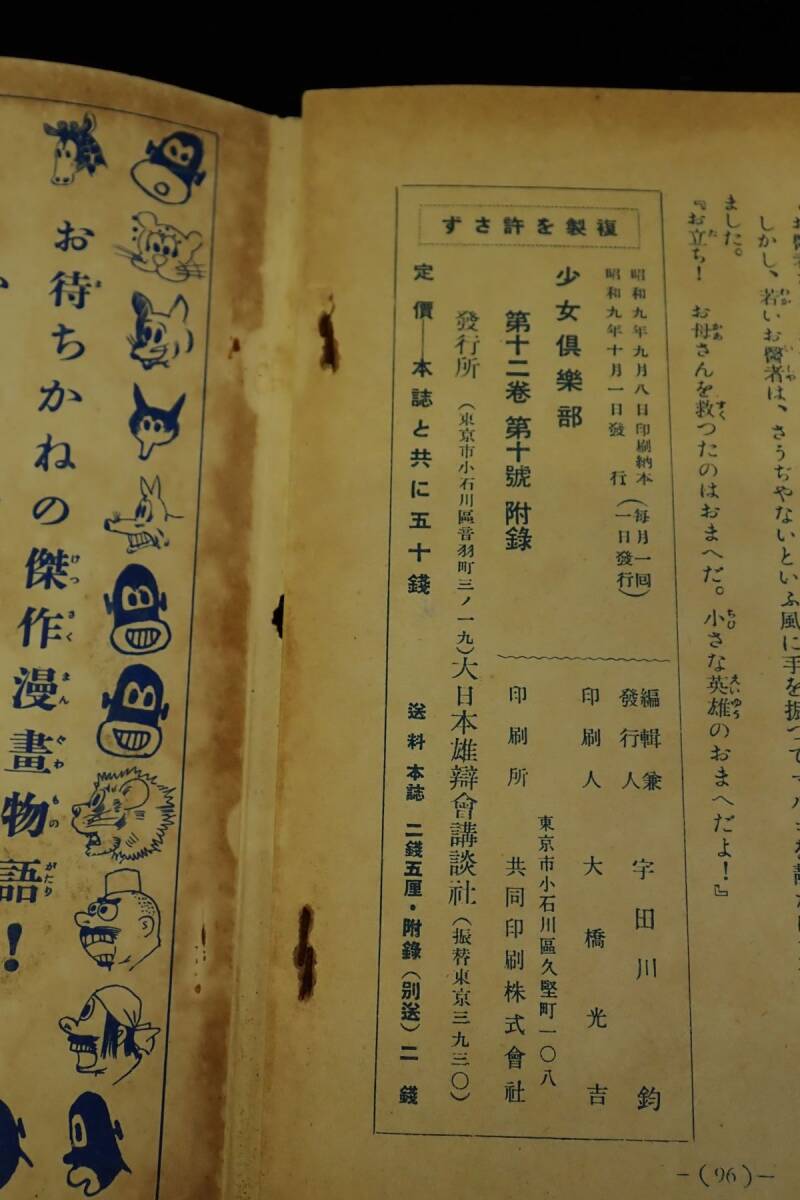 しかし、若いお醫者は、さうぢやないといふ風に手を振つて
ました。
『お立ち！　お母さんを救つたのはおまへだ。小さな英雄のおまへだよ！』
複製を許さず
昭和九年九月八日印刷納本
昭和九年十月一日發行
(毎月一回
一日發行)
少女倶樂部
第十二卷 第十號 附錄
發行所 (東京市小石川區音羽町三ノ一九) 大日本雄辯會講談社 (振替東京三九三〇)
定價―本誌と共に五十錢
送料 本誌 二錢五厘・附錄(別送)二錢
編輯兼
發行人 宇田川鈞
印刷人 大橋光吉
東京市小石川區久堅町一〇八
印刷所 共同印刷株式會社
―(96)―
お待ちかねの傑作漫畫物語！